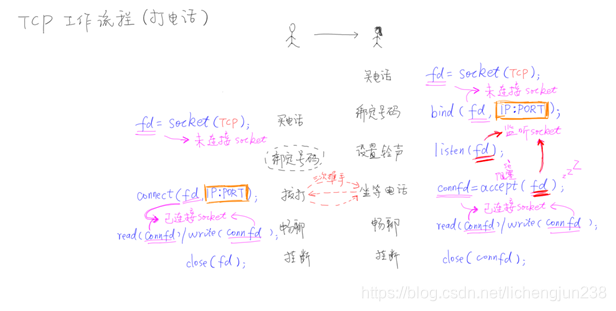 TCP 工作流程(打电话)
买电话 fd = socket(TCP);
未连接 socket
绑定号码 bind( fd, IP:PORT);
fd = socket(TCP); 买电话
未连接 socket
监听socket
(绑定号码) 设置铃声 listen(fd);
三次握手
阻塞
zzZ
connect(fd, IP:PORT); 拨打 坐等电话 connfd=accept( fd );
已连接socket 已连接socket
read(Connfd)/write(connfd); 畅聊 畅聊 read(connfd)/write(connfd);
close(fd); 挂断 挂断 close( connfd);
https://blog.csdn.net/lichengjun238